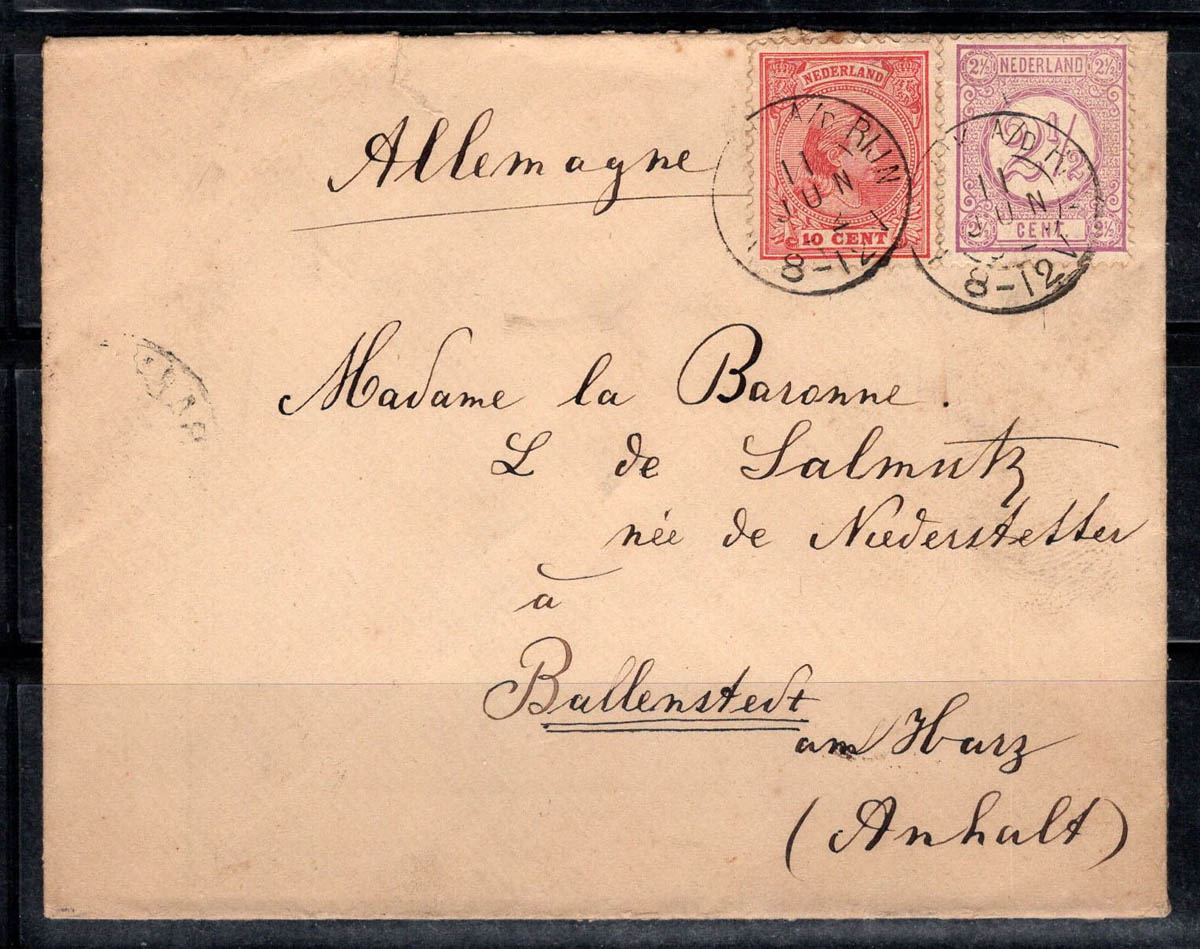 NEDERLAND
10 CENT
2½ NEDERLAND 2½
2½
2½ CENT 2½
A/D RIJN
11
JUN
8-12V
A/D
11
JUN
8-12V
Allemagne
Madame la Baronne.
L de Salmutz
née de Niederstetter
à
Ballenstedt
am Harz
(Anhalt)